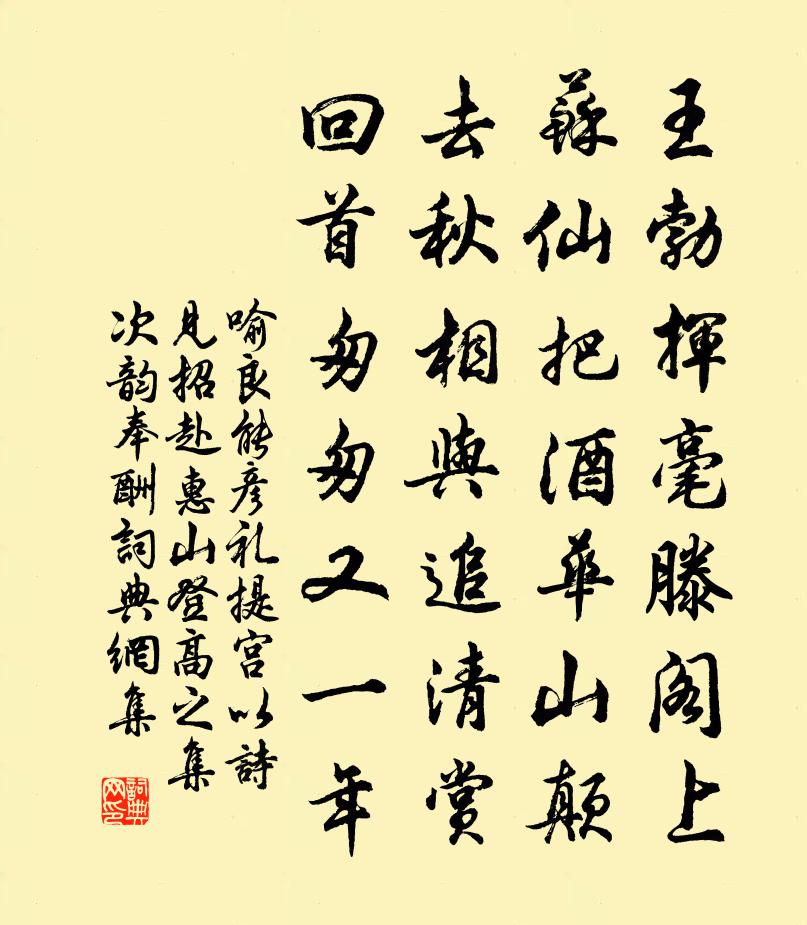 王勃揮毫滕阁上
蘇仙把酒華山颠
去秋相與追清賞
回首匆匆又一年
喻良能彦礼提宫以詩
見招赴惠山登高之集
次韵奉酬詞典網集
詞典网印